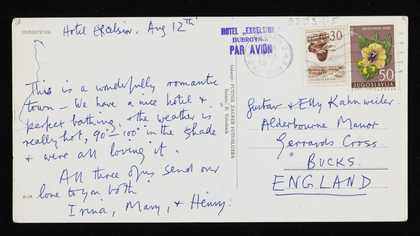 DUBROVNIK
Hotel Excelsior. Aug 12th
This is a wonderfully romantic
town – We have a nice hotel &
perfect bathing. The weather is
really hot, 90°–100° in the shade
& were all loving it.
All three of us send our
love to you both
Irina, Mary, & Henry.
HOTEL „EXCELSIOR"
DUBROVNIK
PAR AVION
30
50
JUGOSLAVIJA
Gustav & Elly Kahnweiler
Alderbourne Manor
Gerrards Cross
BUCKS.
ENGLAND